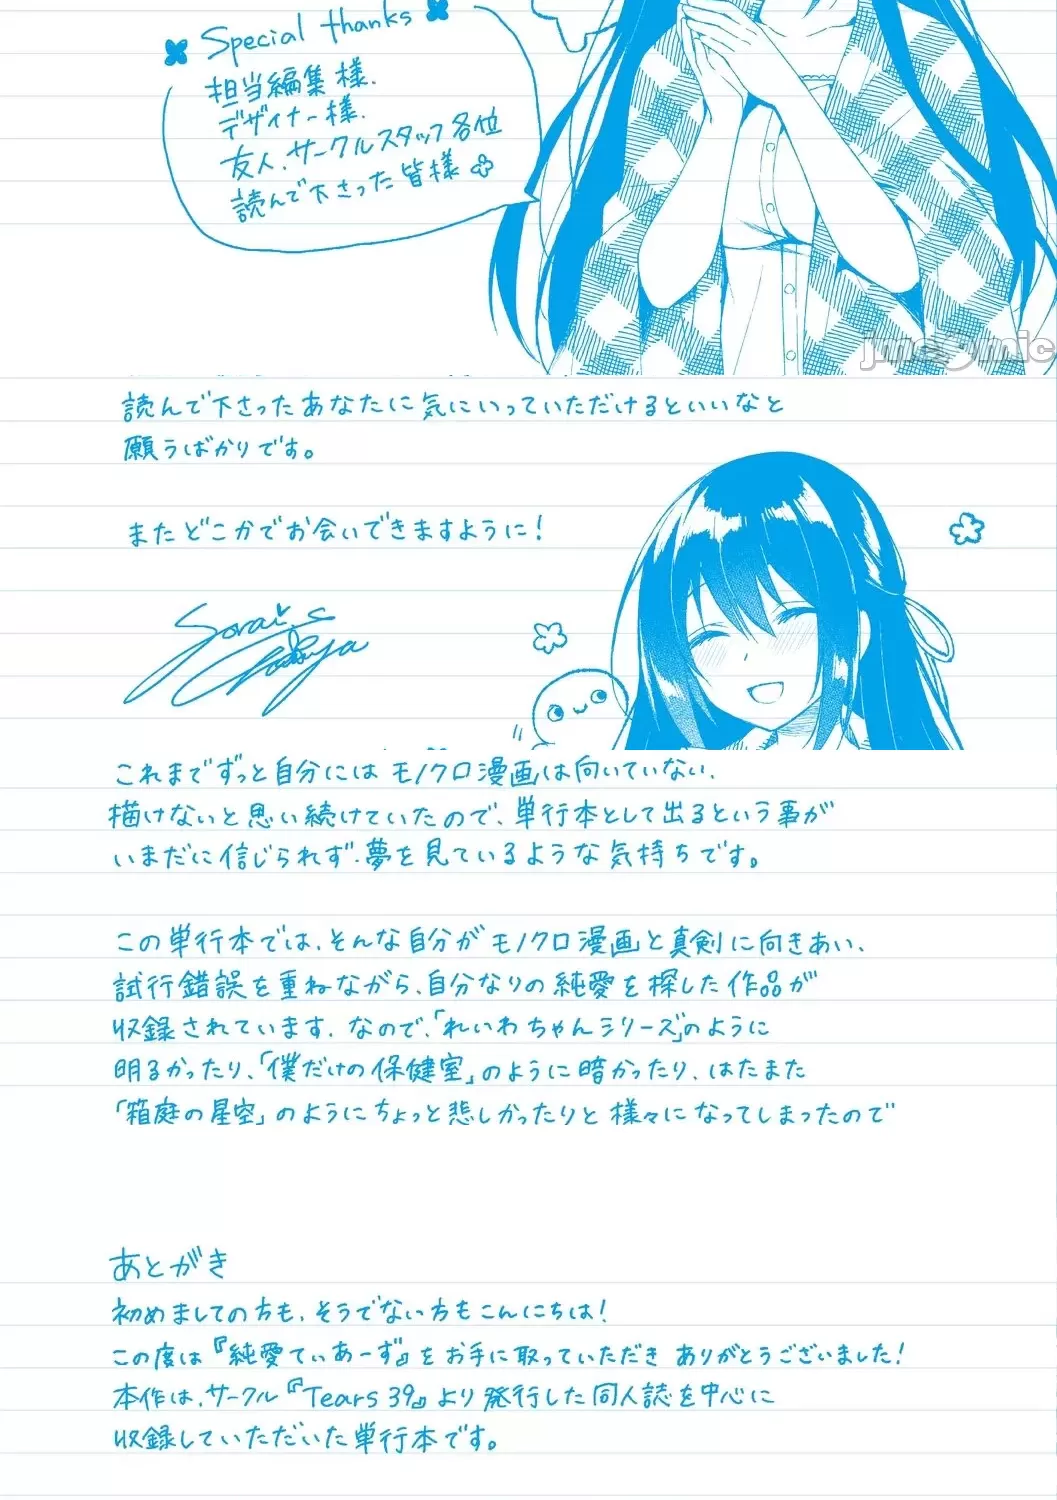 Special thanks
担当編集様.
デザイナー様.
友人.サークルスタッフ各位
読んで下さった皆様
jmcomic
読んで下さったあなたに気にいっていただけるといいなと
願うばかりです。
またどこかでお会いできますように!
これまでずっと自分にはモノクロ漫画は向いていない、
描けないと思い続けていたので、単行本として出るという事が
いまだに信じられず、夢を見ているような気持ちです。
この単行本では、そんな自分がモノクロ漫画と真剣に向きあい、
試行錯誤を重ねながら、自分なりの純愛を探した作品が
収録されています. なので、「れいわちゃんシリーズ」のように
明るかったり、「僕だけの保健室」のように暗かったり、はたまた
「箱庭の星空」のようにちょっと悲しかったりと様々になってしまったので
あとがき
初めましての方も、そうでない方もこんにちは!
この度は『純愛てぃあーず』をお手に取っていただき ありがとうございました!
本作は、サークル『Tears 39』より発行した同人誌を中心に
収録していただいた単行本です。